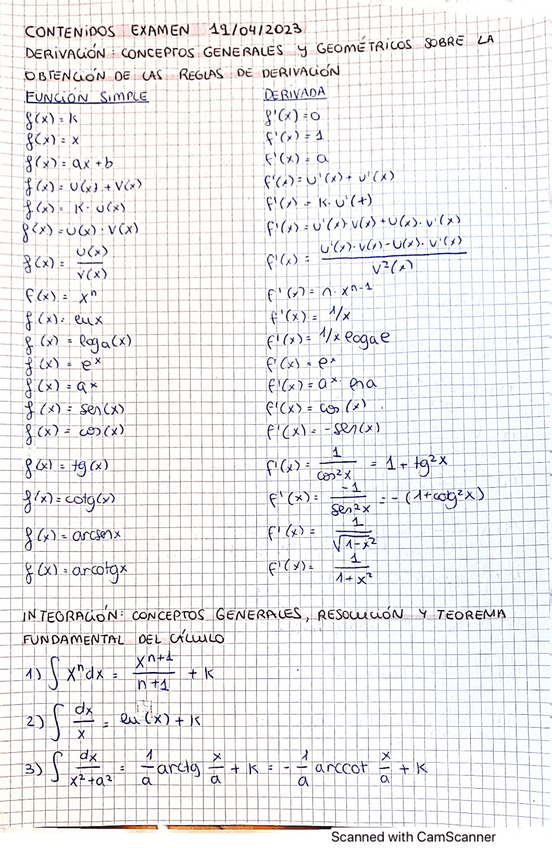 CONTENIDOS EXAMEN 19/04/2023
DERIVACIÓN: CONCEPTOS GENERALES y GEOMÉTRICOS SOBRE LA
OBTENCIÓN DE LAS REGLAS DE DERIVACIÓN
FUNCIÓN SIMPLE DERIVADA
f(x) = K f'(x) = 0
f(x) = x f'(x) = 1
f(x) = ax + b f'(x) = a
f(x) = U(x) + V(x) f'(x) = U'(x) + U'(x)
f(x) = K · U(x) f'(x) = K · U'(+)
f(x) = U(x) · V(x) f'(x) = U'(x) · V(x) + U(x) · V'(x)
f(x) = U(x) / V(x) f'(x) = U'(x) · V(x) - U(x) · V'(x) / V²(x)
f(x) = xⁿ f'(x) = n · xⁿ⁻¹
f(x) = lnx f'(x) = 1/x
f(x) = loga(x) f'(x) = 1/x logae
f(x) = eˣ f'(x) = eˣ
f(x) = aˣ f'(x) = aˣ · lna
f(x) = sen(x) f'(x) = cos(x)
f(x) = cos(x) f'(x) = -sen(x)
f(x) = tg(x) f'(x) = 1 / cos²x = 1 + tg²x
f(x) = cotg(x) f'(x) = -1 / sen²x = -(1+cotg²x)
f(x) = arcsenx f'(x) = 1 / √1-x²
f(x) = arcotgx f'(x) = 1 / 1+x²
INTEGRACIÓN: CONCEPTOS GENERALES, RESOLUCIÓN Y TEOREMA
FUNDAMENTAL DEL CÁLCULO
1) ∫ xⁿdx = xⁿ⁺¹ / n+1 + K
2) ∫ dx / x = ln(x) + K
3) ∫ dx / x²+a² = 1/a arctg x/a + K = - 1/a arccot x/a + K
Scanned with CamScanner